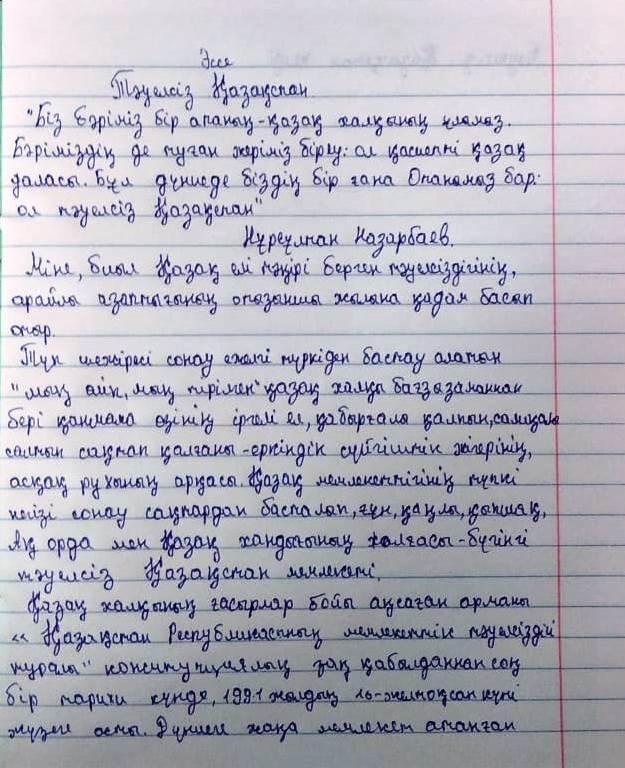 Эссе
Тәуелсіз Қазақстан
"Біз бәріміз бір атаның-қазақ халқының ұлымыз.
Бәріміздің де туған жеріміз біреу: ол қасиетті қазақ
даласы. Бұл дүниеде біздің бір ғана Отанымыз бар:
ол тәуелсіз Қазақстан"
Нұрсұлтан Назарбаев.
Міне, биыл Қазақ елі тәңірі берген тәуелсіздігінің,
арайлы азаттығының отызыншы жылына қадам басып
отыр.
Түп шежіресі сонау ежелгі түркіден бастау алатын
"мың өліп, мың тірілген" қазақ халқы бағзы заманнан
бері қанмама өзінің іргелі ел, қабырғалы қалпын, салиқалы
салтын сақтап қалғаны-еркіндік сүйгіштік жігерінің,
асқақ рухының арқасы. Қазақ мемлекеттігінің түпкі
негізі сонау сақтардан басталып, ғұн, қаңлы, қыпшақ,
Ақ орда мен Қазақ хандығының жалғасы-бүгінгі
тәуелсіз Қазақстан мемлекеті.
Қазақ халқының ғасырлар бойы аңсаған арманы
«Қазақстан Республикасының мемлекеттік тәуелсіздігі
туралы" конституциялық заң қабылданнан соң
бір тарихи күнде, 1991 жылдың 16-желтоқсан күні
жүзеге асты. Дүниеге жаңа мемлекет атанған